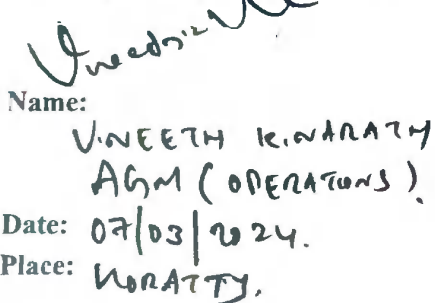 Name:
VINEETH K.NARATH
AGM (OPERATIONS).
Date: 07/03/2024.
Place: KORATTY.